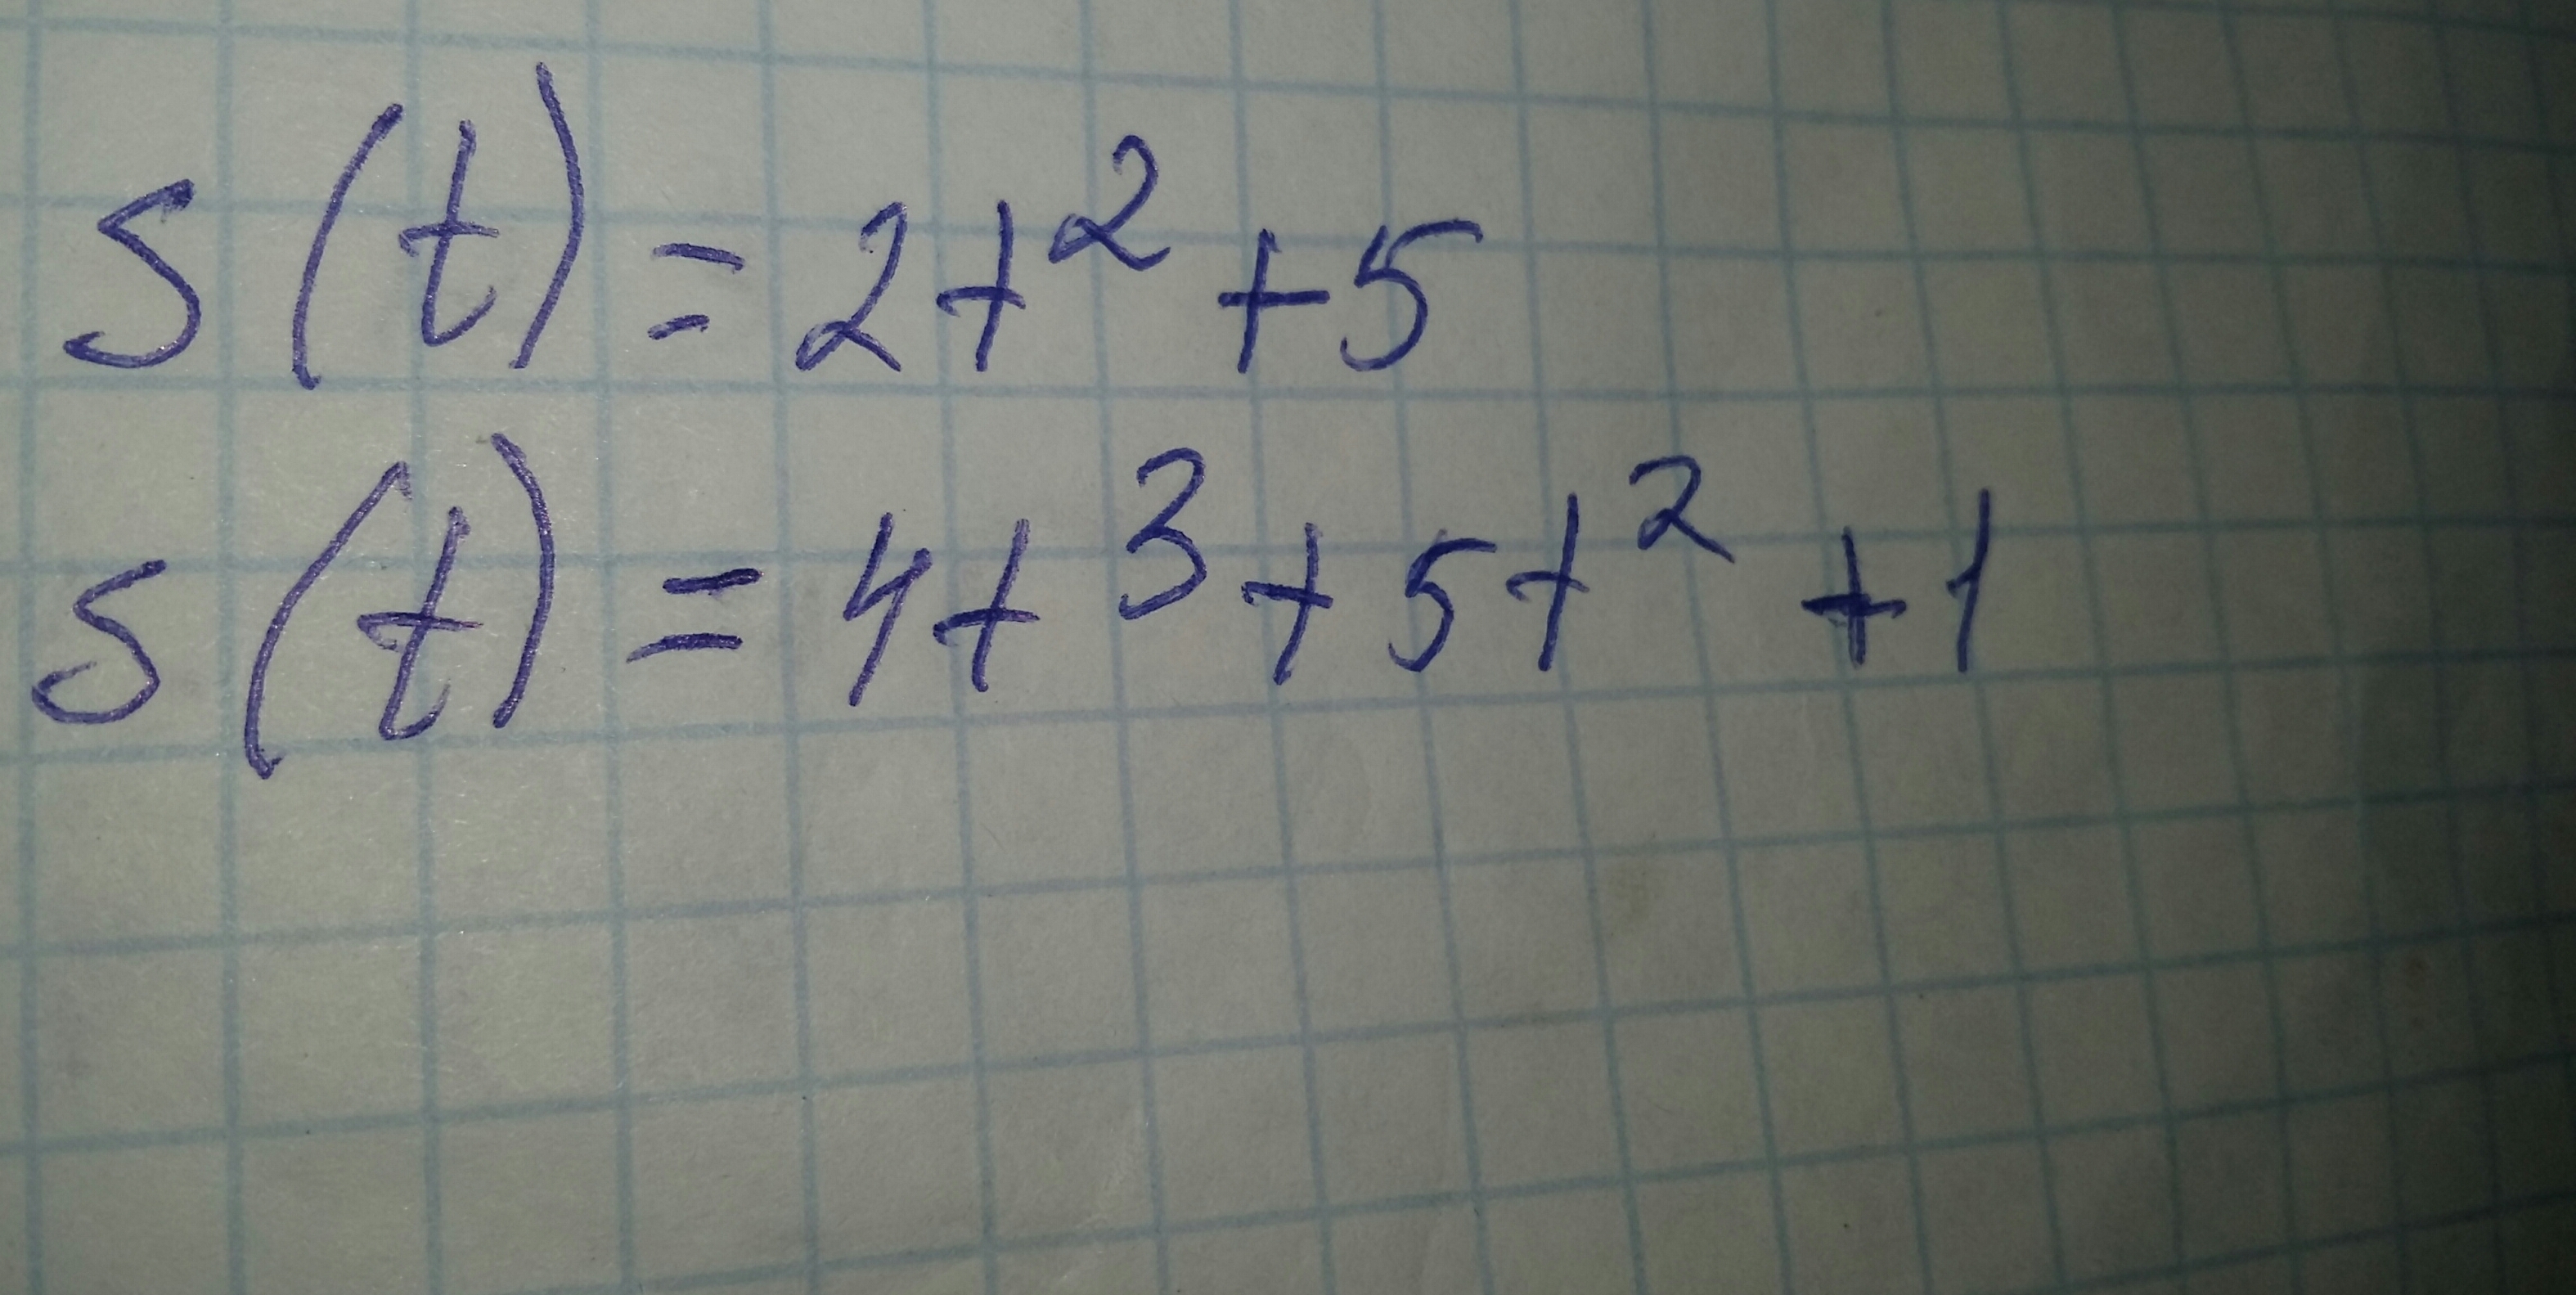 S(t) = 2t² + 5
S(t) = 4t³ + 5t² + 1